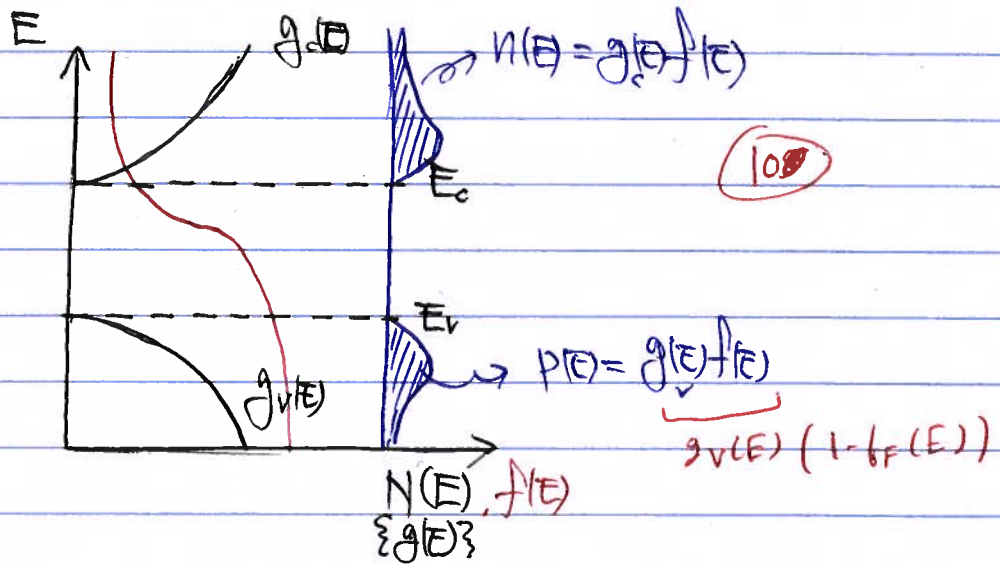 E
g_c(E)
n(E) = g_c(E) f(E)
10
E_c
E_v
p(E) = g_v(E) f(E)
g_v(E)
g_v(E) (1-f_F(E))
N(E), f(E)
{g(E)}